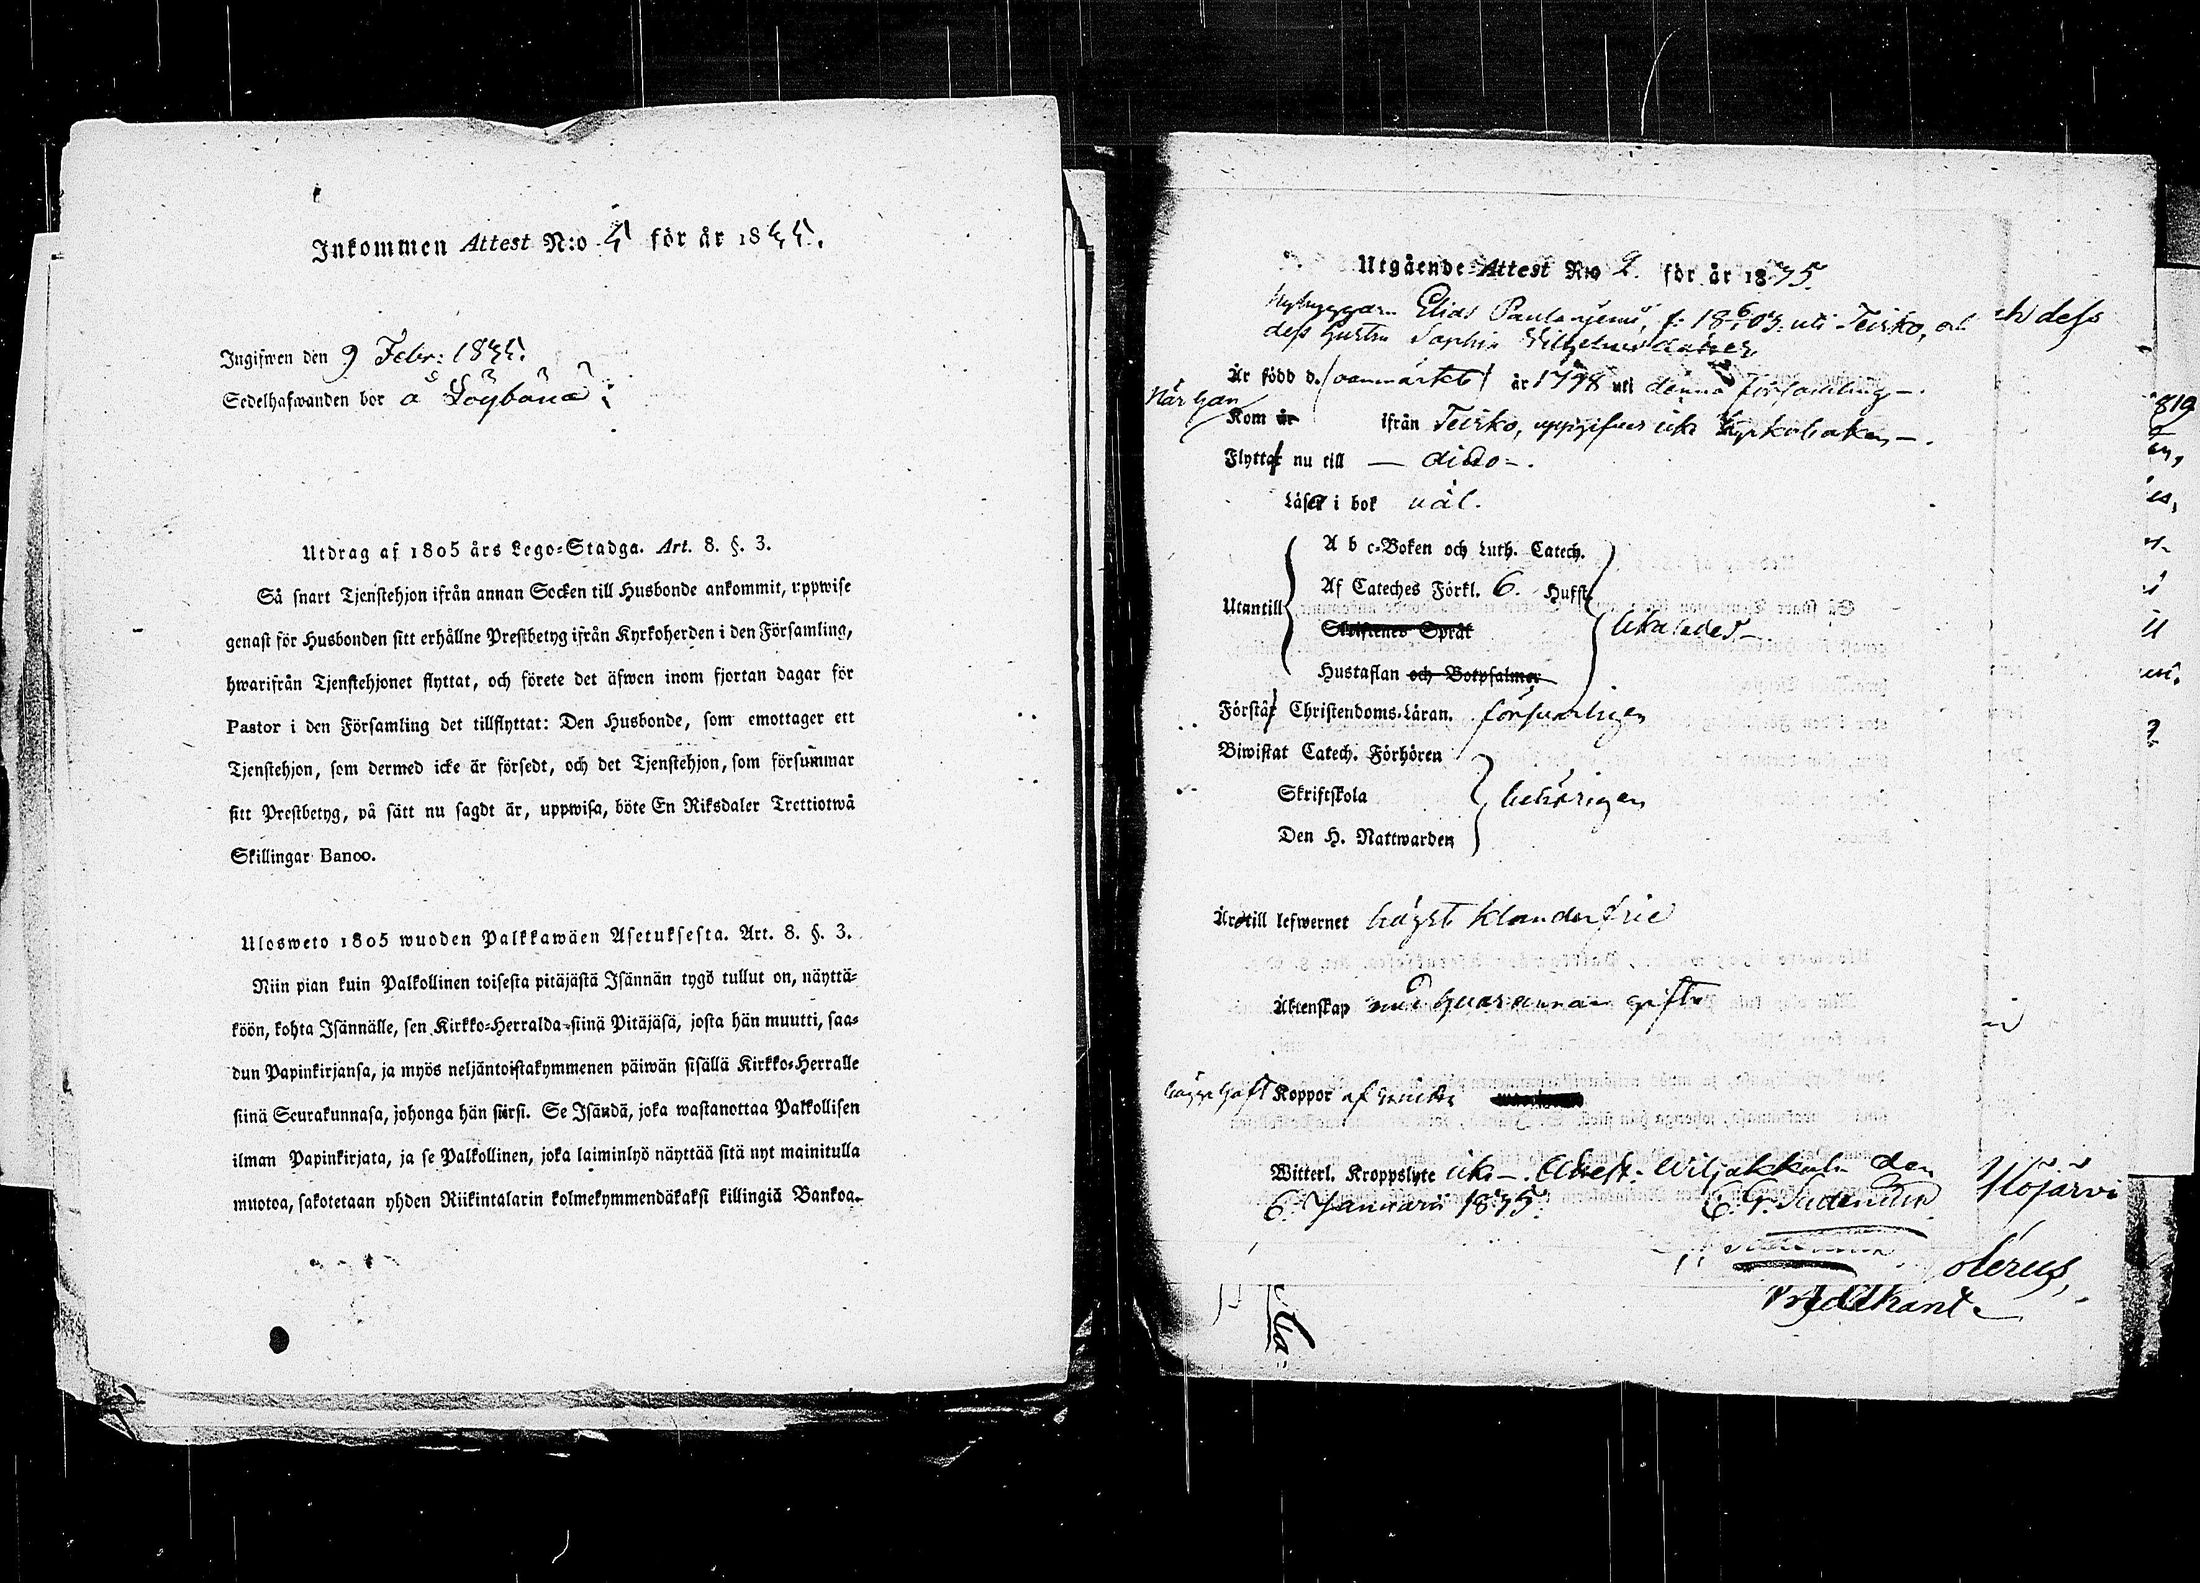 Inkommen Attest N:o 5 för år 1835.
Ingifwen den 9 Febr: 1835.
Sedelhafwanden bor å Löybänä:
Utdrag af 1805 års Lego-Stadga. Art. 8. §. 3.
Så snart Tjenstehjon ifrån annan Socken till Husbonde ankommit, uppwise
genast för Husbonden sitt erhållne Prestbetyg ifrån Kyrkoherden i den Församling,
hwarifrån Tjenstehjonet flyttat, och förete det äfwen inom fjortan dagar för
Pastor i den Församling det tillflyttat: Den Husbonde, som emottager ett
Tjenstehjon, som dermed icke är försedt, och det Tjenstehjon, som försummar
sitt Prestbetyg, på sätt nu sagdt är, uppwisa, böte En Riksdaler Trettiotwå
Skillingar Banco.
Ulosweto 1805 wuoden Palkkawäen Asetuksesta. Art. 8. §. 3.
Niin pian kuin Palkollinen toisesta pitäjästä Isännän tygö tullut on, näyttä-
köön, kohta Isännälle, sen Kirkko-Herralda siinä Pitäjäsä, josta hän muutti, saa-
dun Papinkirjansa, ja myös neljäntoistakymmenen päiwän sisällä Kirkko-Herralle
siinä Seurakunnasa, johonga hän siirsi. Se Isändä, joka wastanottaa Palkollisen
ilman Papinkirjata, ja se Palkollinen, joka laiminlyö näyttää sitä nyt mainitulla
muotoa, sakotetaan yhden Riikintalarin kolmekymmendäkaksi killingiä Bankoa.
Utgående Attest N:o 2. för år 1835.
Nybyggaren Elias f: 18 6/1 03. uti Teisko, och
dess hustru Sophia Wilhelmsdotter,
Är född d. (oanmärkt) år 1798 uti denna församling -.
När han
Kom år ifrån Teisko, uppgifver ick Kyrkoboken -.
Flyttar nu till - dito -.
Läser i bok väl.
A b c-Boken och Luth. Catech.
Af Cateches Förkl. 6. Hufst.
Utantill
Skriftenes Språk
likaledes -
Hustaflan och Botpsalmer
Förstår Christendoms-Läran. försvarligen
Biwistat Catech. Förhören
Skriftskola behörigen
Den H. Nattwarden
Äro till lefwernet högst klanderfrie
Äktenskap med hvarannan gifte
hafft Koppor
Witterl. Kroppslyte ick -. Attest. Wiljakkala den
6. Januarii 1835.
ch dess
819
Ylöjärvi